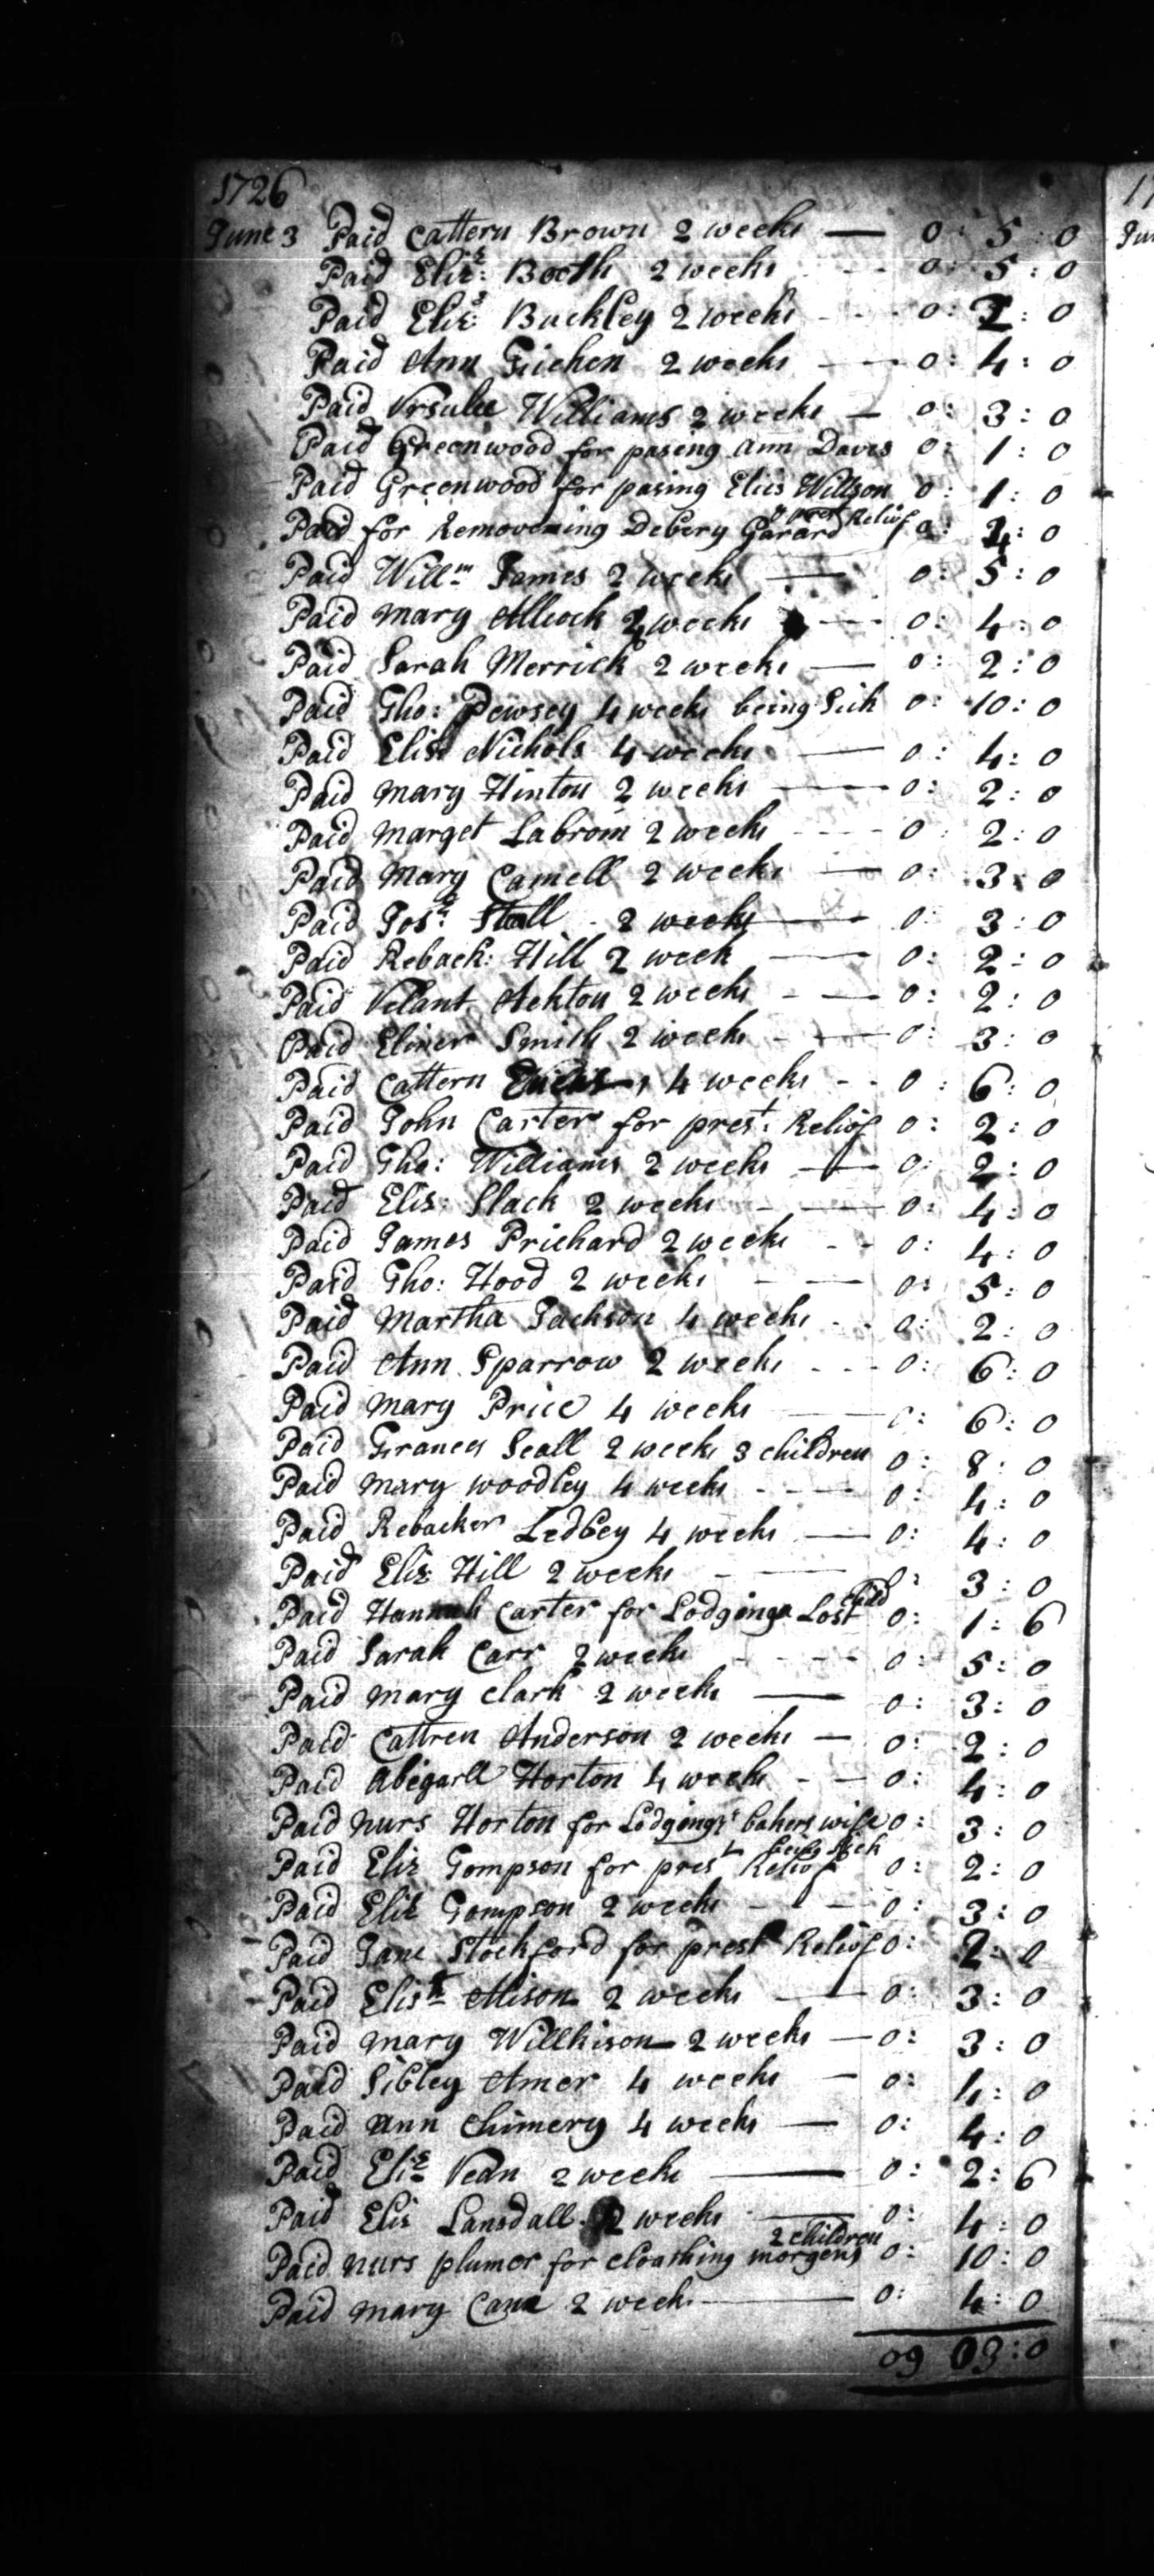 1726
June 3 Paid Cattern Brown 2 weeks — 0 : 5 : 0
Paid Eliz: Booth 2 weeks - - - 0 : 5 : 0
Paid Eliz: Buckley 2 weeks - - - 0 : : 0
Paid Ann 2 weeks - — 0 : 4 : 0
Paid Ursula Williams 2 weeks — 0 : 3 : 0
Paid Greenwood for pasing Ann Daves 0 : 1 : 0
Paid Greenwood for pasing Elis Willson 0 : 1 : 0
Paid for Removeing Debery Garard Reliof 0 : : 0
Paid Willm James 2 weeks — 0 : 5 : 0
Paid Mary Allcock 2 weeks - - - 0 : 4 : 0
Paid Sarah Merrick 2 weeks — 0 : 2 : 0
Paid Tho: Pewsey 4 weeks being Sick 0 : 10 : 0
Paid Elis: Nichols 4 weeks — 0 : 4 : 0
Paid Mary Hinton 2 weeks — 0 : 2 : 0
Paid Marget Labrom 2 weeks - - - - 0 : 2 : 0
Paid Mary Camell 2 weeks — 0 : 3 : 0
Paid Stall - 2 weeks — 0 : 3 : 0
Paid Reback: Hill 2 week — 0 : 2 : 0
Paid Ashton 2 weeks - — 0 : 2 : 0
Paid Eliner Smith 2 weeks - — 0 : 3 : 0
Paid Cattern 4 weeks - - 0 : 6 : 0
Paid John Carter for prest: Reliof 0 : 2 : 0
Paid Tho: Williams 2 weeks — 0 : 2 : 0
Paid Elis: Slack 2 weeks - — 0 : 4 : 0
Paid James Prichard 2 weeks - - 0 : 4 : 0
Paid Tho: Hood 2 weeks - — 0 : 5 : 0
Paid Martha Jackson 4 weeks - - 0 : 2 : 0
Paid Ann Sparrow 2 weeks - - - 0 : 6 : 0
Paid Mary Price 4 weeks — 0 : 6 : 0
Paid Frances Seall 2 weeks 3 children 0 : 8 : 0
Paid Mary Woodley 4 weeks - - - — 0 : 4 : 0
Paid Rebacker Ledbey 4 weeks — 0 : 4 : 0
Paid Eliz: Hill 2 weeks - — 0 : 3 : 0
Paid Hannah Carter for Lodginga Lost child 0 : 1 : 6
Paid Sarah Carr 2 weeks - - - - 0 : 5 : 0
Paid Mary Clark 2 weeks — 0 : 3 : 0
Paid Cattren Anderson 2 weeks — 0 : 2 : 0
Paid Abigarll Horton 4 weeks - — 0 : 4 : 0
Paid nurs Horton for Lodgings bakers wife 0 : 3 : 0
being Sick
Paid Eliz Tompson for prest Reliof 0 : 2 : 0
Paid Eliz Tompson 2 weeks - - — 0 : 3 : 0
Paid Jane Stockford for prest Reliof 0 : 2 : 0
Paid Elisth Alison 2 weeks — 0 : 3 : 0
Paid Mary Willkison 2 weeks — 0 : 3 : 0
Paid Sibley Amer 4 weeks — 0 : 4 : 0
Paid Ann Chimery 4 weeks — 0 : 4 : 0
Paid Eliz Vean 2 weeks — 0 : 2 : 6
Paid Elis Lansdall 2 weeks — 0 : 4 : 0
2 children
Paid nurs plumer for cloathing morgens 0 : 10 : 0
Paid Mary Cane 2 weeks — 0 : 4 : 0
09 03 : 0